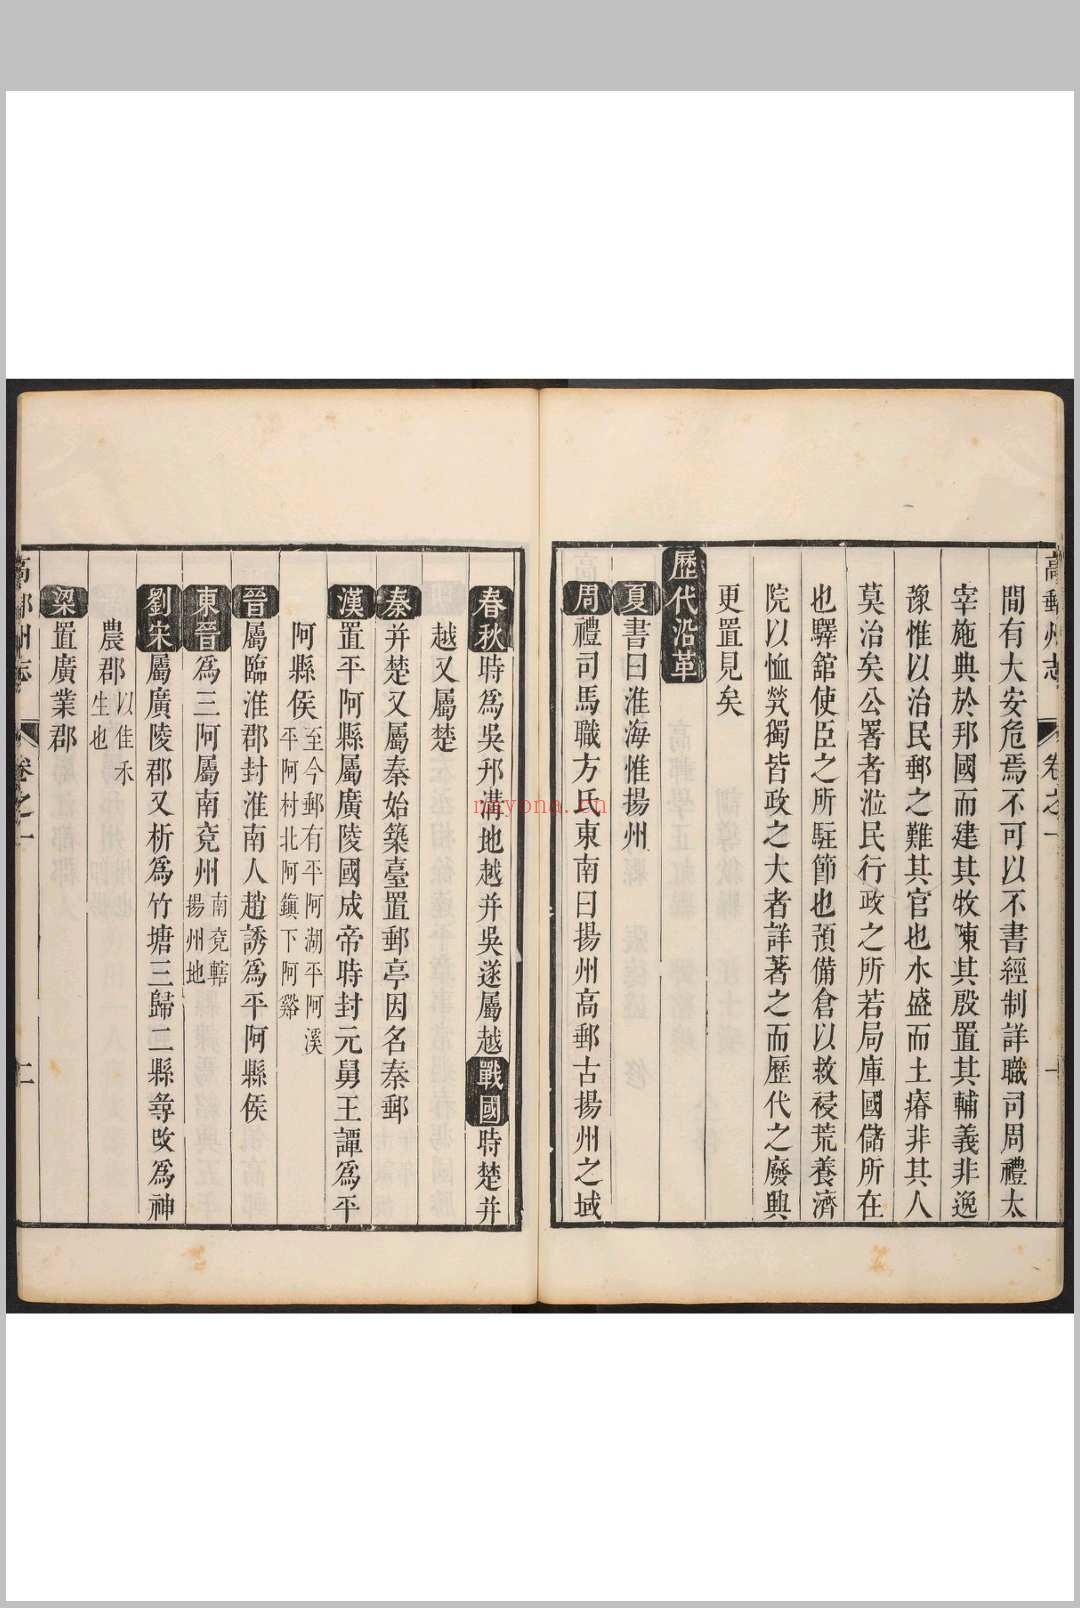 高郵州志 卷之一 一
間有大安危焉不可以不書經制詳職司周禮太
宰施典於邦國而建其牧陳其殷置其輔義非逸
豫惟以治民郵之難其官也水盛而土瘠非其人
莫治矣公署者涖民行政之所若局庫國儲所在
也驛舘使臣之所駐節也預備倉以救祲荒養濟
院以恤煢獨皆政之大者詳著之而歷代之廢興
更置見矣
歷代沿革
夏書曰淮海惟揚州
周禮司馬職方氏東南曰揚州高郵古揚州之域
春秋時為吳邗溝地越并吳遂屬越戰國時楚并
越又屬楚
秦并楚又屬秦始築臺置郵亭因名秦郵
漢置平阿縣屬廣陵國成帝時封元舅王譚為平
阿縣侯至今郵有平阿湖平阿溪平阿村北阿鎮下阿谿
晉屬臨淮郡封淮南人趙誘為平阿縣侯
東晉為三阿屬南兗州南兗轄揚州地
劉宋屬廣陵郡又析為竹塘三歸二縣尋改為神
農郡以佳禾生也
梁置廣業郡
高郵州志 卷之一 二
nayona.cn